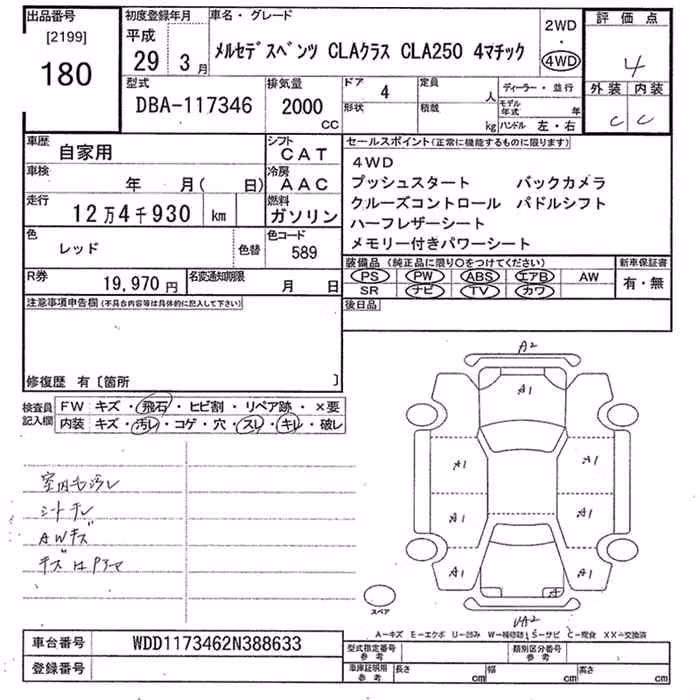 出品番号
[2199]
180
初度登録年月
平成
29 3月
車名・グレード
メルセデスベンツ CLAクラス CLA250 4マチック
2WD
・
4WD
評価点
4
外装 内装
C C
型式
DBA-117346
排気量
2000
CC
ドア 4
形状
定員 人
積載 kg
ディーラー・並行
モデル年式 年
ハンドル 左・右
車歴
自家用
シフト
CAT
車検
年 月( 日)
冷房
AAC
走行
12万4千930 km
燃料
ガソリン
色
レッド
色替
色コード
589
R券
19,970円
名変通知期限
月 日
セールスポイント(正常に機能するものに限ります)
4WD
プッシュスタート バックカメラ
クルーズコントロール パドルシフト
ハーフレザーシート
メモリー付きパワーシート
装備品(純正品に限り○をつけてください)
PS PW ABS エアB AW
SR ナビ TV カワ
新車保証書
有・無
後日品
注意事項申告欄(不具合内容等は具体的に記入して下さい)
修復歴 有〔箇所 〕
検査員
記入欄
FW キズ・飛石・ヒビ割・リペア跡・×要
内装 キズ・汚レ・コゲ・穴・スレ・キレ・破レ
室内毛汚レ
AWキズ
A2
A1
A1
A1
A1
A1
A1
A1
A
スペア
A―キズ E―エクボ U―凹み W―補修跡 S―サビ C―腐食 XX―交換済
車台番号
WDD1173462N388633
登録番号
型式指定番号
参考
類別区分番号
参考
車庫証明用
参考
長さ cm
幅 cm
高さ cm